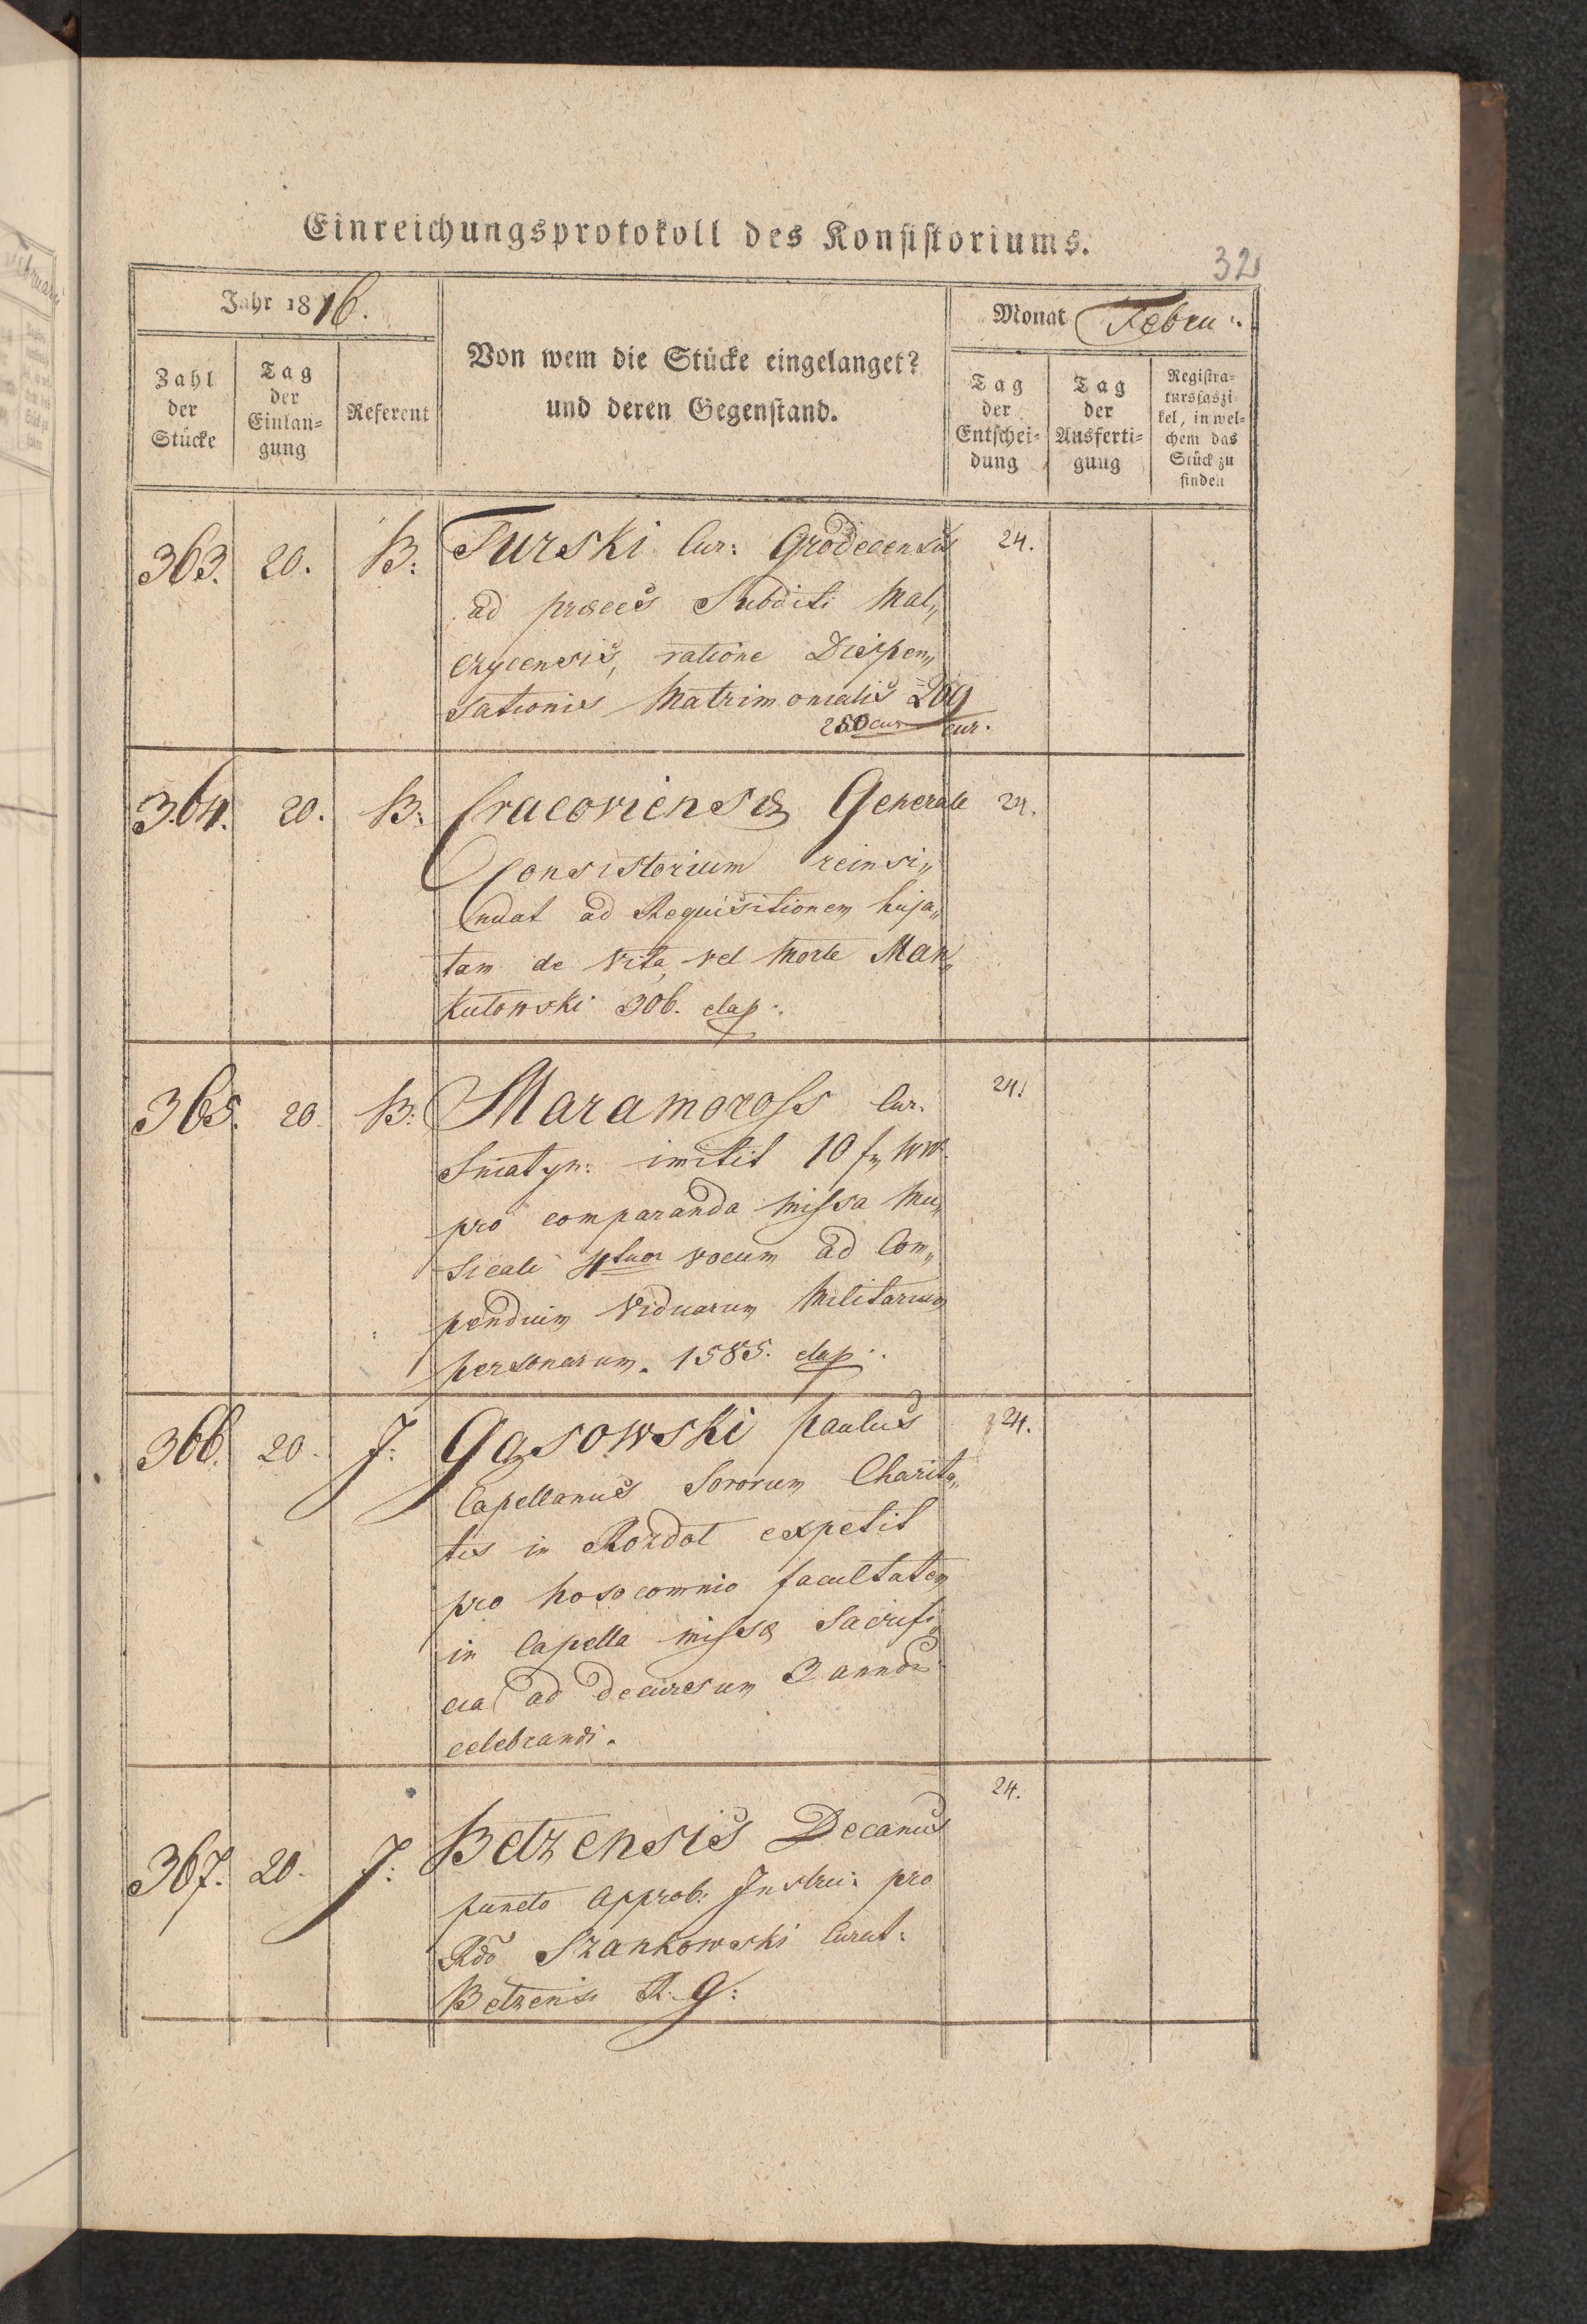 Einreichungsprotokoll des Konsistoriums.
32
Jahr 1816.
Monat Febru:.
Zahl der Stücke
Tag der Einlan=gung
Referent
Von wem die Stücke eingelanget?
und deren Gegenstand.
Tag der Entschei=dung
Tag der Ausferti=gung
Registra=tursfaszi=kel, in wel=chem das Stück zu finden
363. 20. B: Turski Cur: Grodecensis 24.
ad preces Subditi Mal„
czycensis, ratione Dispen„
sationis Matrimonialis 209
250 cur cur.
364. 20. B: Cracoviensæ Generale 24.
Consistorium reinsi„
nuat ad Requisitionem huja„
tam de Vita vel Morte Man„
kutowski 306. elap:.
365. 20. B: Maramoross Cur. 24.
Sniatyn: imitit 10 f„ WW.
pro comparanda Missa Mu„
sicali 4tuor vocum ad Com„
pendium Viduarum Militarium
personarum. 1585. elap:.
366. 20. J: Gąsowski Paulus 24.
Capellanus Sororum Charita„
tis in Rozdol expetit
pro hosocomnio facultatem
in Capella missæ Sacrifi„
cia ad decursum 3 annor
celebrandi.
24.
367. 20. J: Betzensis Decanus
puncto Approb: Instru: pro
Rdo Szankowski Curat:
Betzensi R. G: